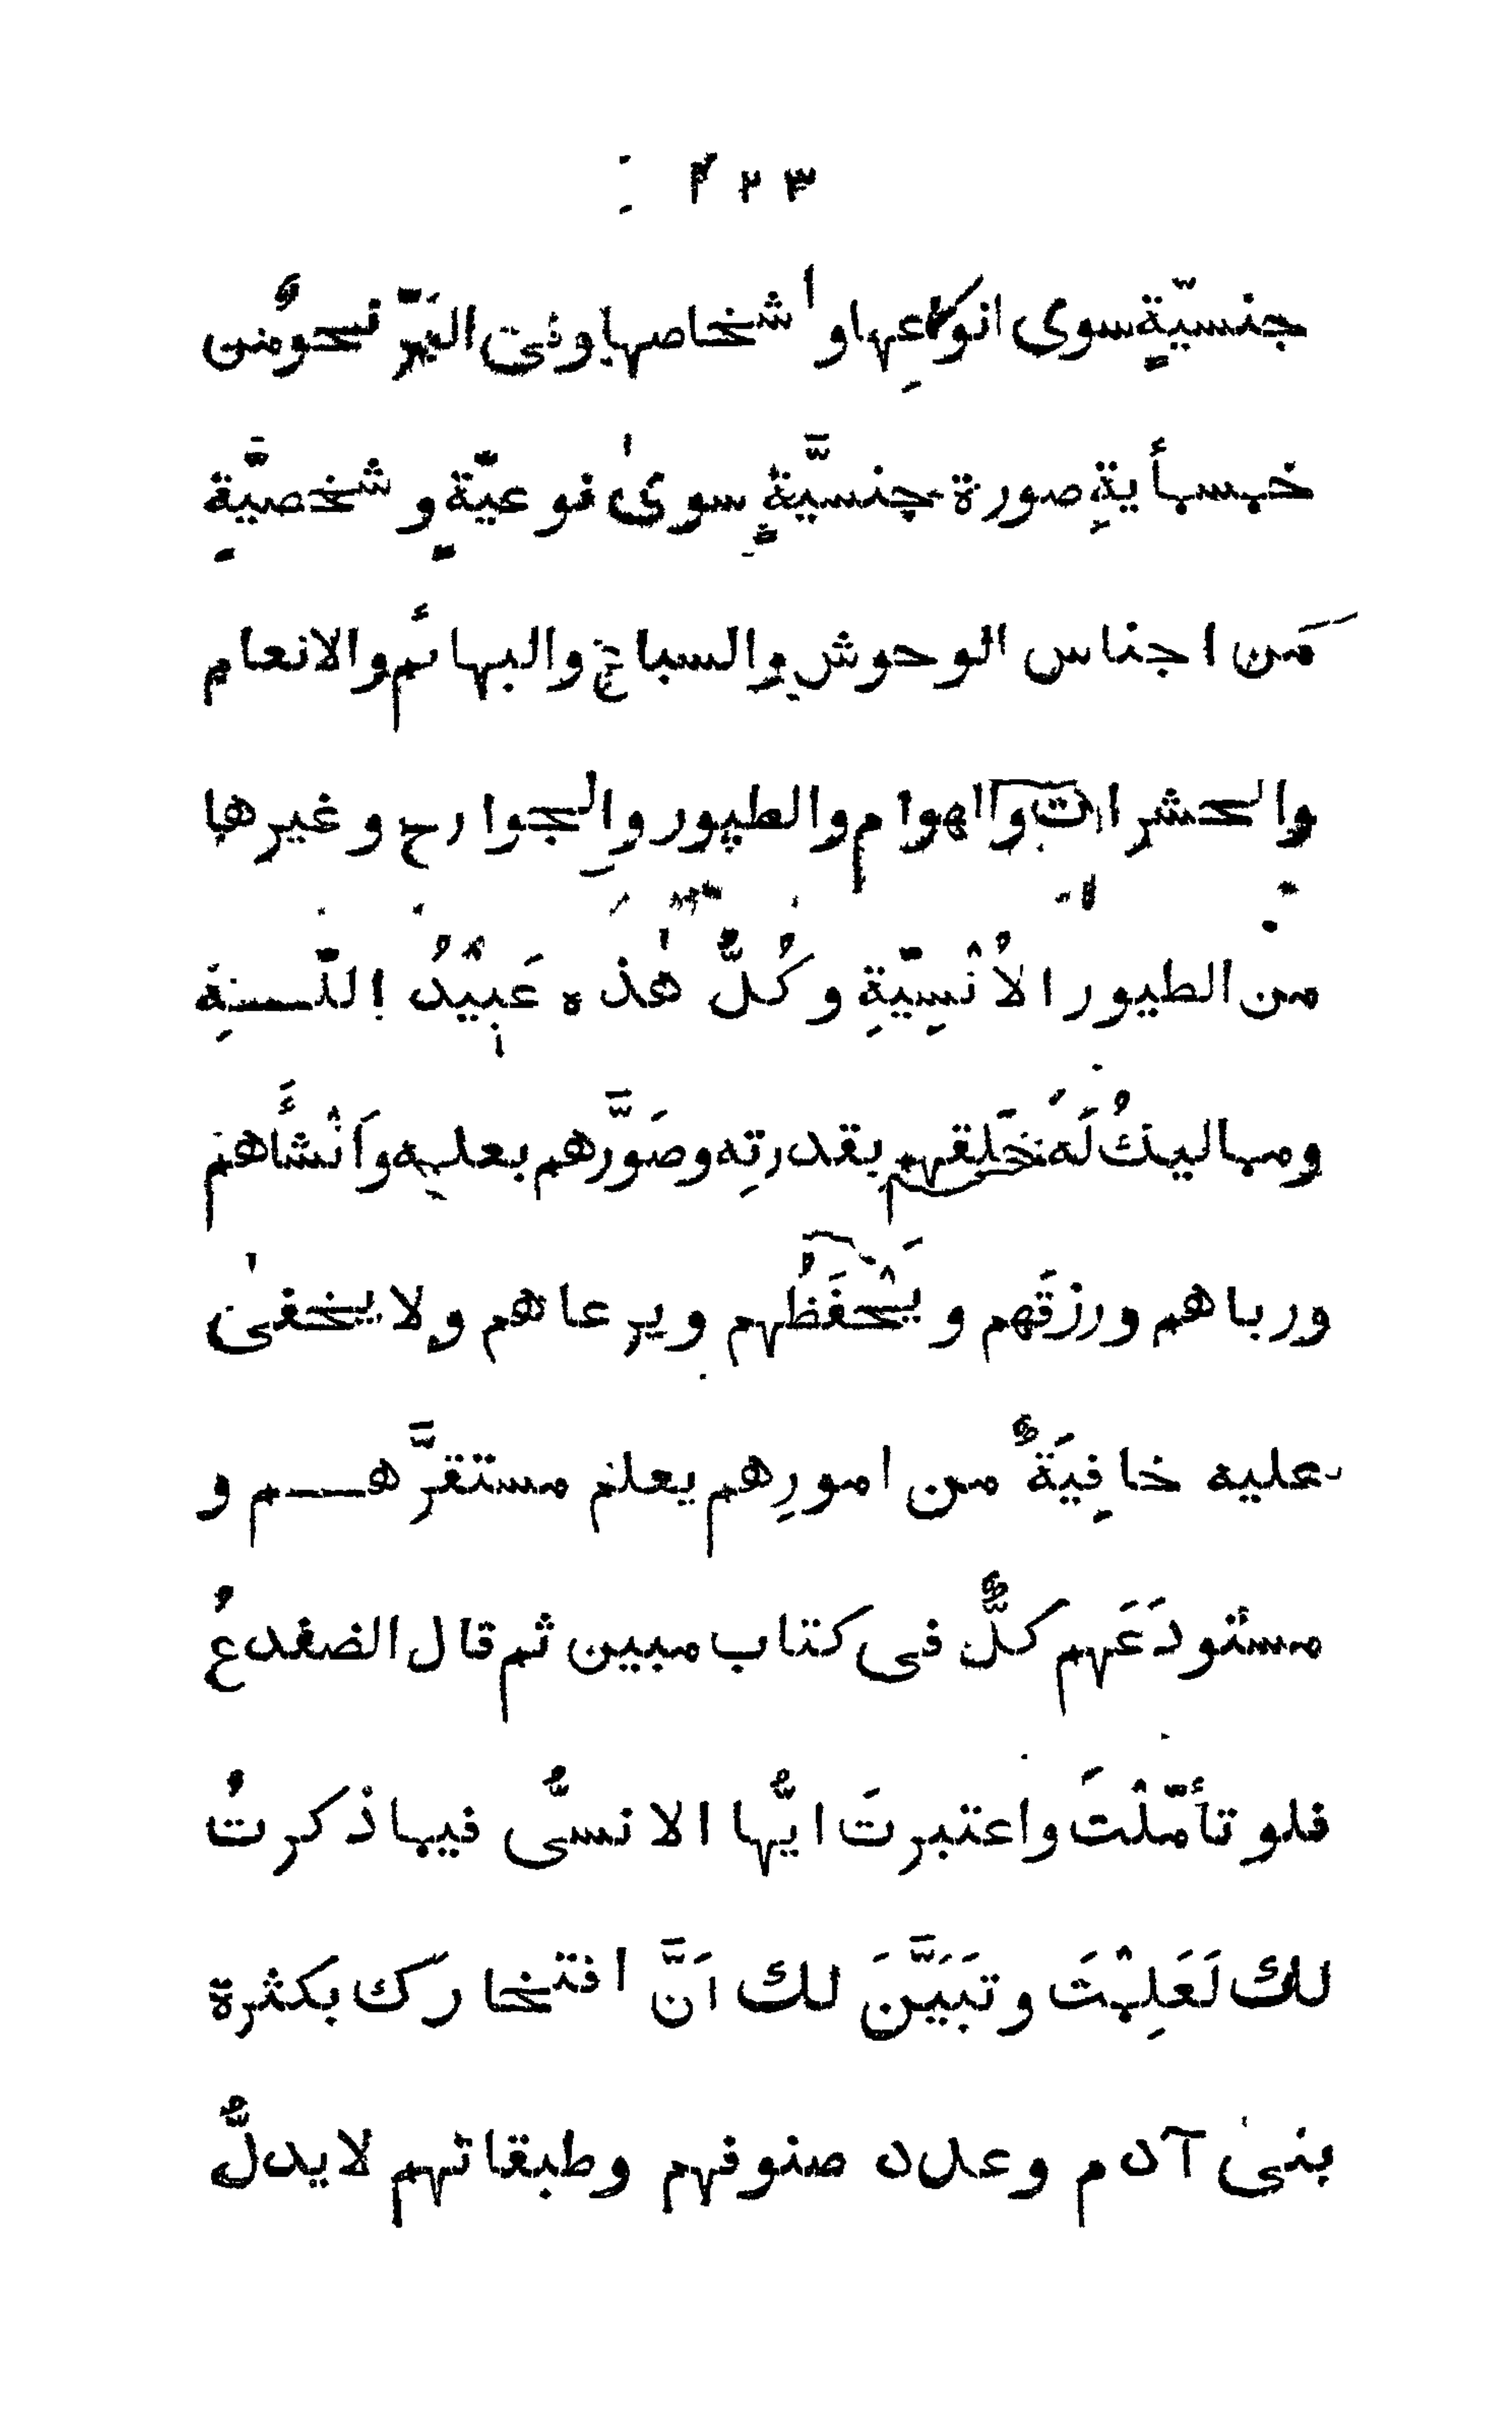 ٣٢٣
جنسيّةٍ سوى انواعِها واشخاصها وفى البَرّ نحوٌ من
خمسمأيةِ صورة جنسيَّةٍ سوىٰ نوعيّةٍ و شخصيَّةٍ
مَن اجناس الوحوش والسباع والبهائم والانعام
والحشرات والهوام والطيور والجوارح وغيرها
من الطيور الاُنْسِيّةِ وكُلُّ هٰذه عَبِيْدُ اللّهِ
ومماليكُ لَهُ خَلَقهم بقدرتِه وصَوَّرهم بعلمه واَنْشَأَهم
ورباهم ورزقَهم و يَحْفَظُهم ويرعاهم ولا يخفىٰ
عليه خافِيَةٌ من امورِهم يعلم مستقرَّهم و
مستودَعَهم كلٌّ فى كتاب مبين ثم قال الضفدعُ
فلو تأمّلْتَ واعتبرتَ ايُّها الانسىُّ فيما ذكرتُ
لك لَعَلِمْتَ وتَبَيَّنَ لك اَنَّ افتخارك بكثرة
بنى آدم وعدد صنوفهم وطبقاتهم لا يدلُّ